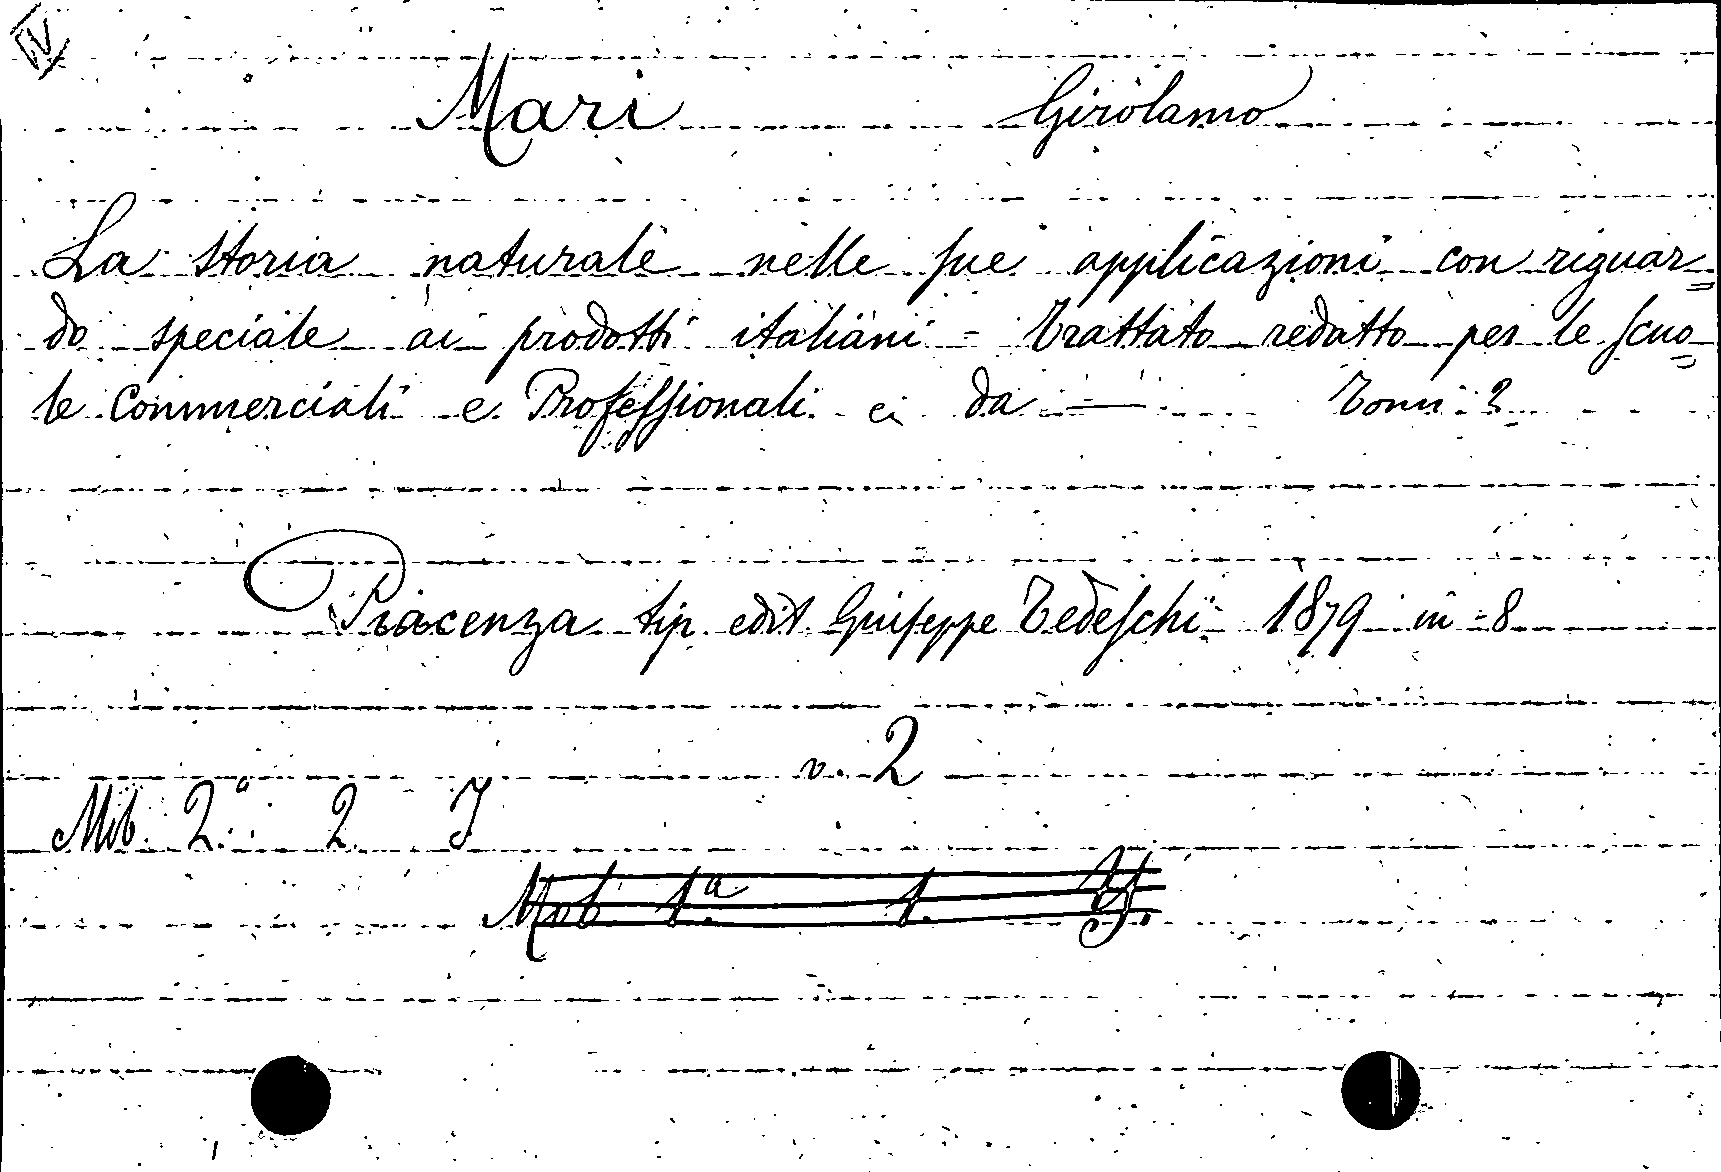 IV
Mari Girolamo
La storia naturale nelle sue applicazioni con riguar=
do speciale ai prodotti italiani - Trattato redatto per le scuo=
le Commerciali e Professionali da — Tomi 2
Piacenza tip. edit Giuseppe Tedeschi 1879 in-8
v. 2
Mob. 2ª 2. I
Mob. 1ª 1.